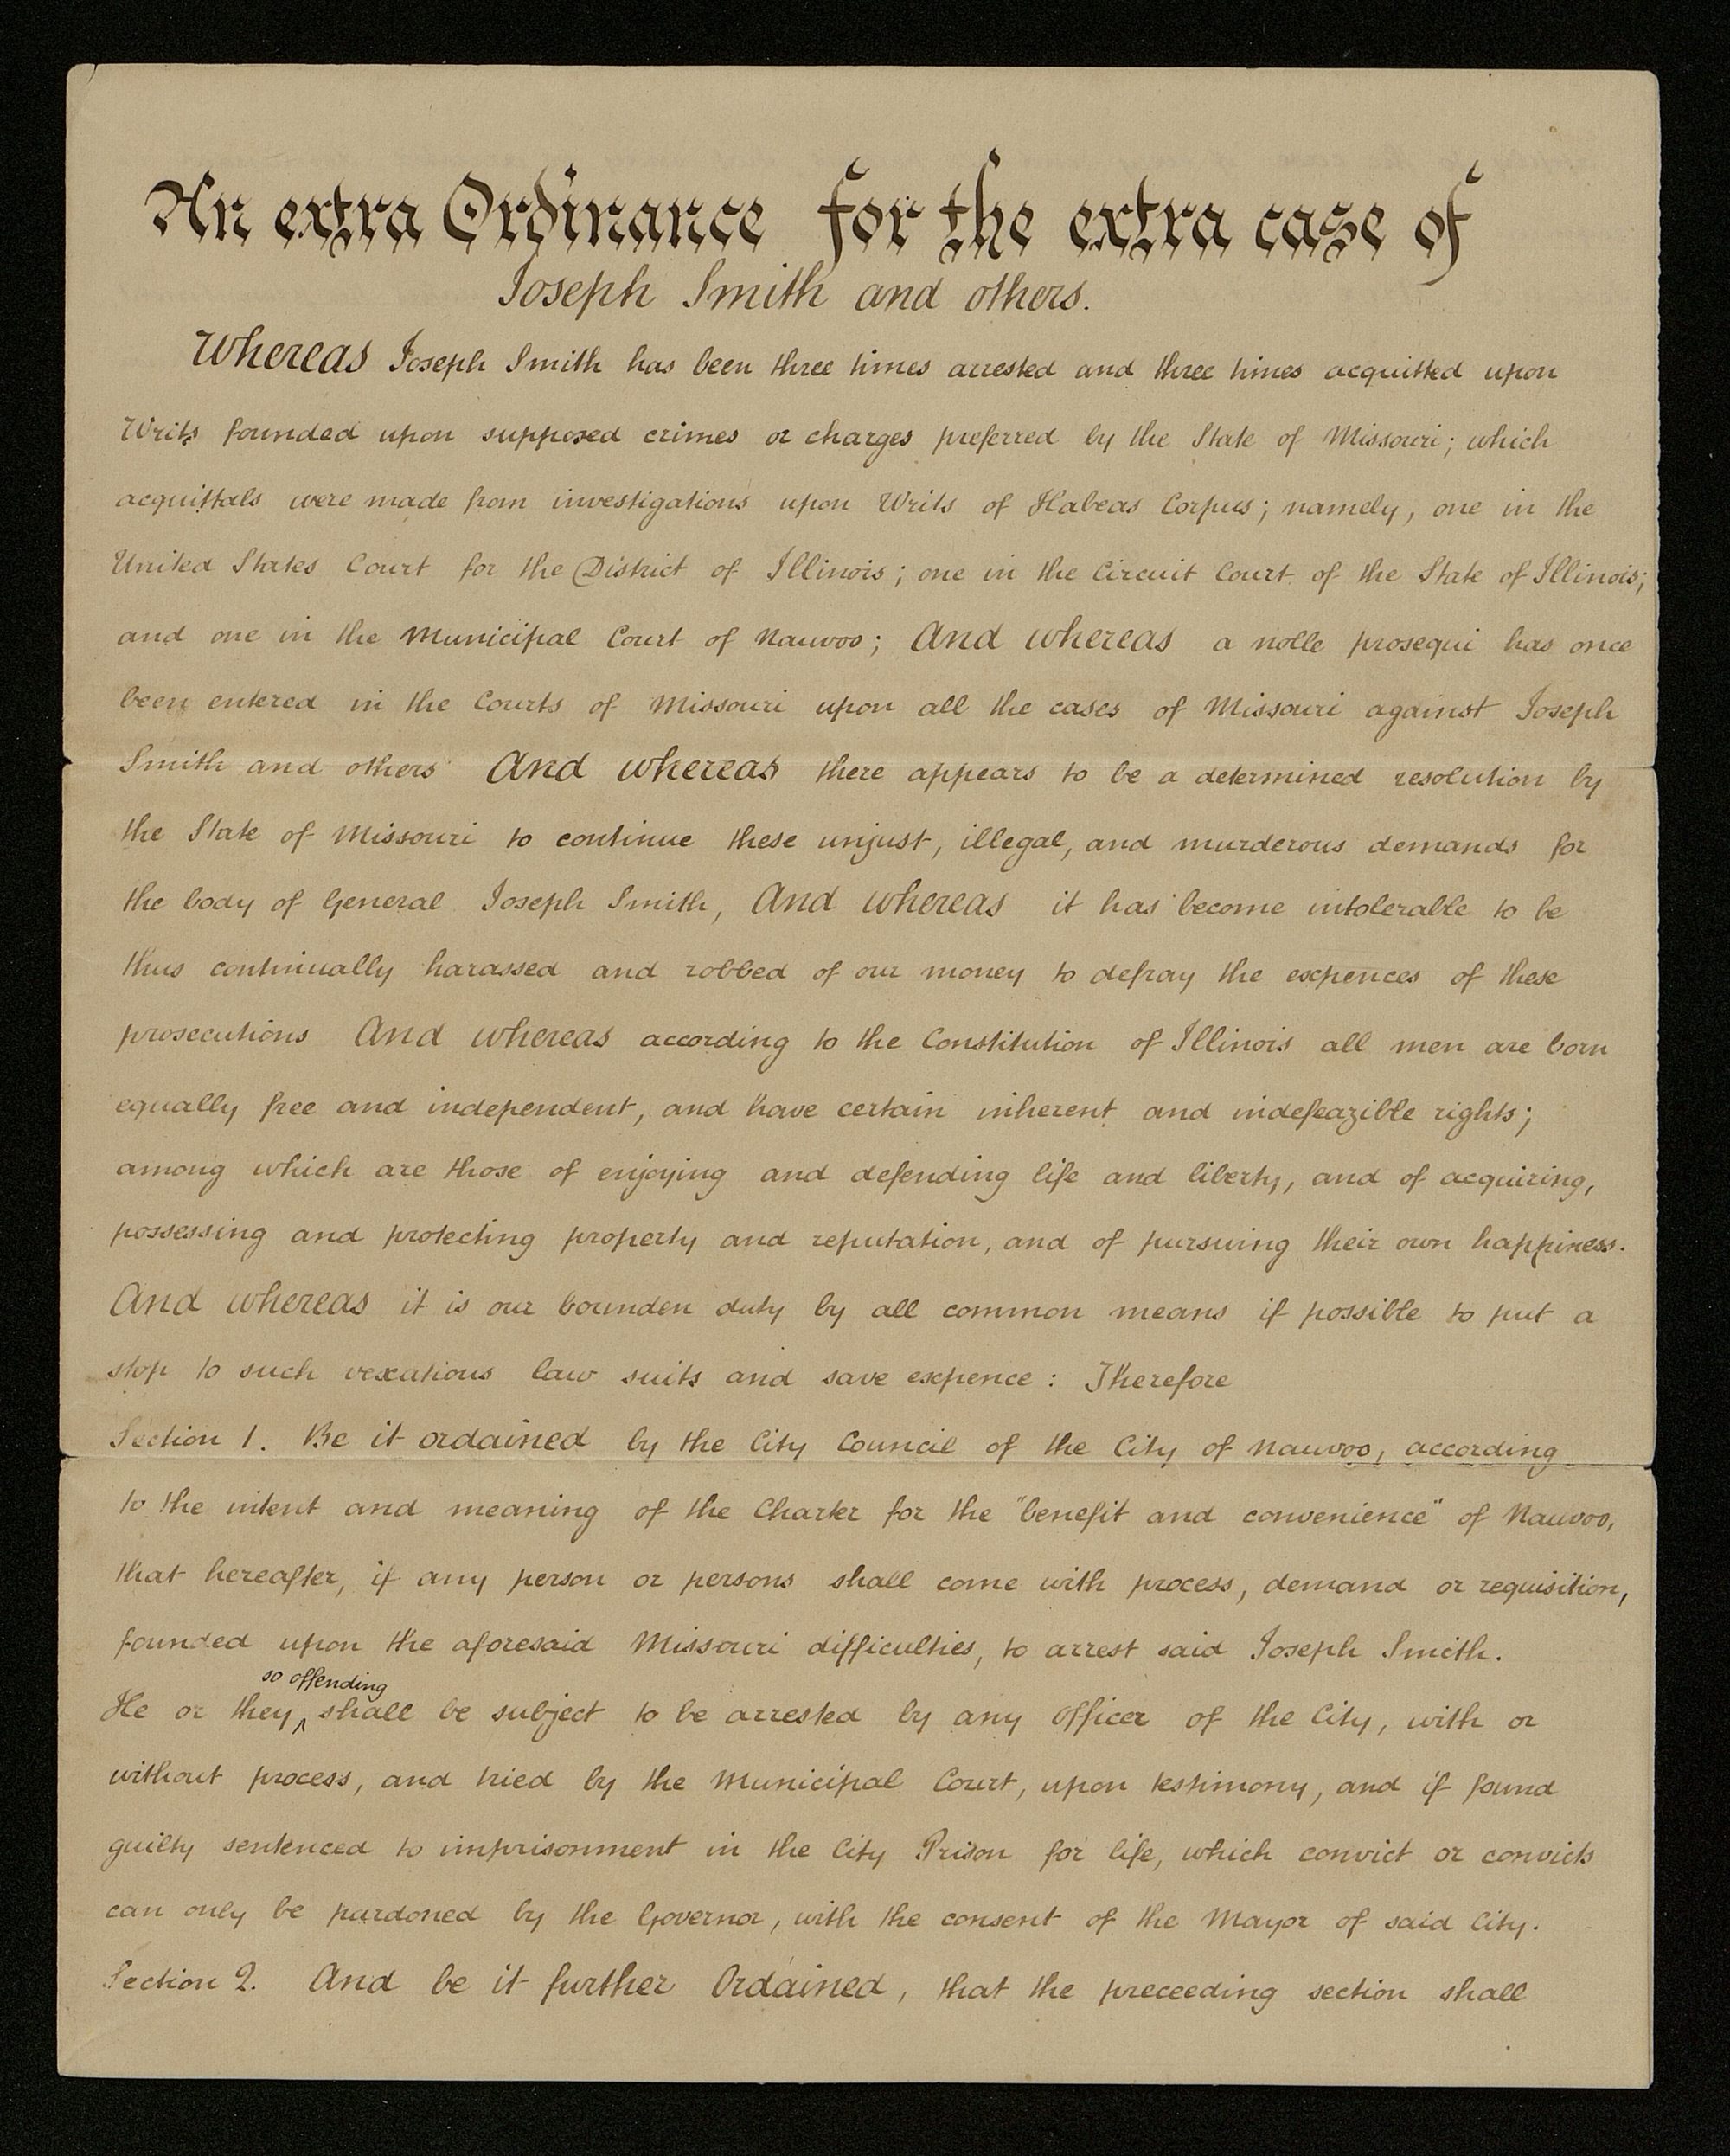 An extra Ordinance for the extra case of
Joseph Smith and others.
Whereas Joseph Smith has been three times arrested and three times acquitted upon
Writs founded upon supposed crimes or charges preferred by the State of Missouri; which
acquittals were made from investigations upon Writs of Habeas Corpus; namely, one in the
United States Court for the District of Illinois; one in the Circuit Court of the State of Illinois;
and one in the Municipal Court of Nauvoo; And whereas a nolle prosequi has once
been entered in the Courts of Missouri upon all the cases of Missouri against Joseph
Smith and others And whereas there appears to be a determined resolution by
the State of Missouri to continue these unjust, illegal, and murderous demands for
the body of General Joseph Smith, And whereas it has become intolerable to be
thus continually harassed and robbed of our money to defray the expences of these
prosecutions And whereas according to the Constitution of Illinois all men are born
equally free and independent, and have certain inherent and indefeazible rights;
among which are those of enjoying and defending life and liberty, and of acquiring,
possessing and protecting property and reputation, and of pursuing their own happiness.
And whereas it is our bounden duty by all common means if possible to put a
stop to such vexatious law suits and save expence: Therefore
Section 1. Be it ordained by the City Council of the City of Nauvoo, according
to the intent and meaning of the Charter for the "benefit and convenience" of Nauvoo,
that hereafter, if any person or persons shall come with process, demand or requisition,
founded upon the aforesaid Missouri difficulties, to arrest said Joseph Smith.
so offending
He or they ^ shall be subject to be arrested by any Officer of the City, with or
without process, and tried by the Municipal Court, upon testimony, and if found
guilty sentenced to imprisonment in the City Prison for life, which convict or convicts
can only be pardoned by the Governor, with the consent of the Mayor of said City.
Section 2. And be it further Ordained, that the preceeding section shall